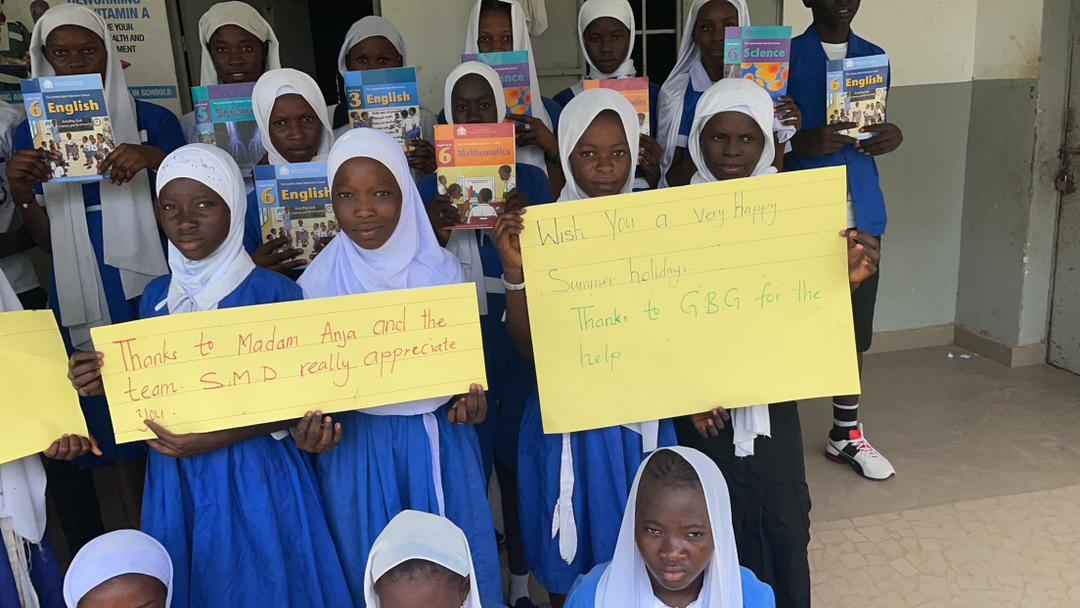 DEWORMING
VITAMIN A
VE YOUR
EALTH AND
MENT
IN SCHOOLS
6 English
5 Science
3 English
Science
6 Science
6 English
6 English
6 Mathematics
Thanks to Madam Anja and the
team. S.M.D really appreciate
you.
Wish You a very happy
Summer holiday.
Thanks to G.B.G for the
help.